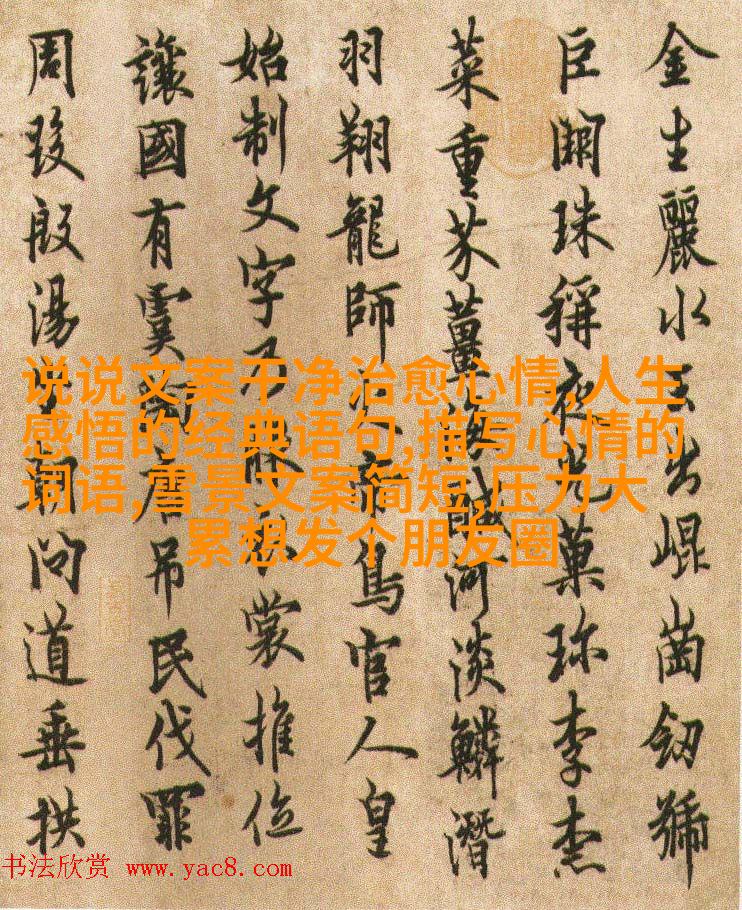 金生麗水玉出崐崗劒號
巨闕珠稱夜光菓珍李柰
菜重芥薑海鹹河淡鱗潛
羽翔龍師火帝鳥官人皇
始制文字乃服衣裳推位
讓國有虞陶唐吊民伐罪
周發殷湯坐朝問道垂拱
说说文案干净治愈心情,人生
感悟的经典语句,描写心情的
词语,雪景文案简短,压力大
累想发个朋友圈
书法欣赏 www.yac8.com